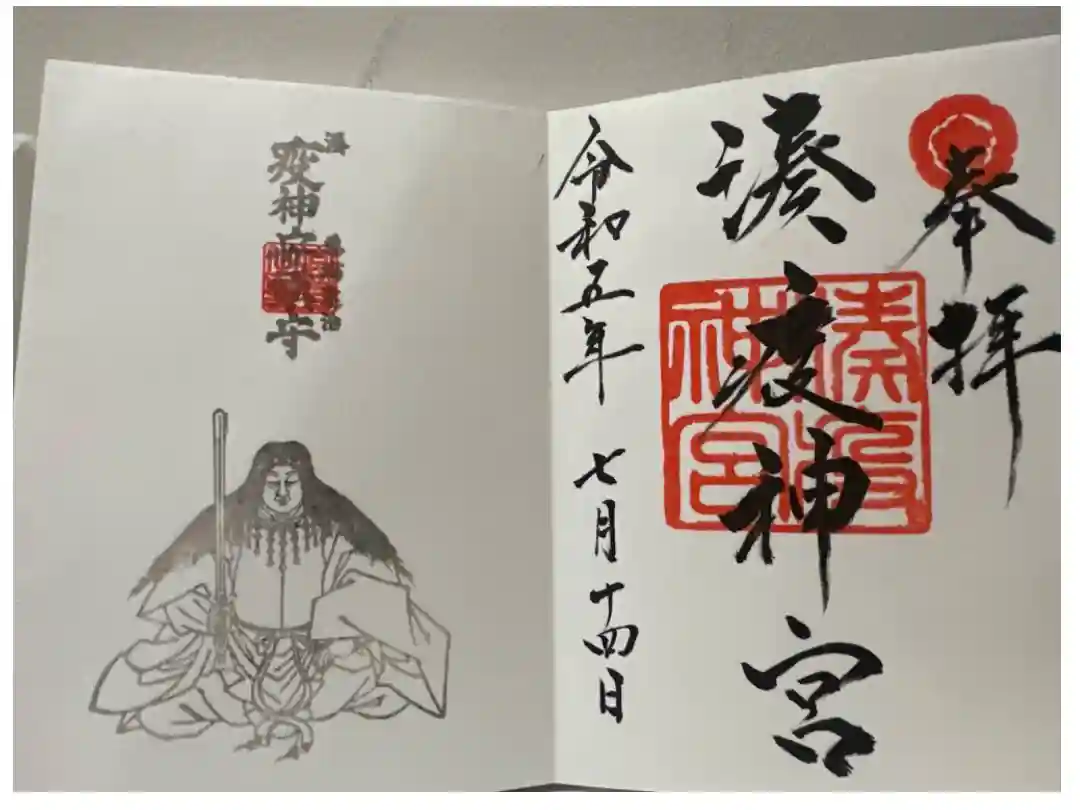 奉拝
湊疫神宮
令和五年
七月十四日
湊
疫神宮
守